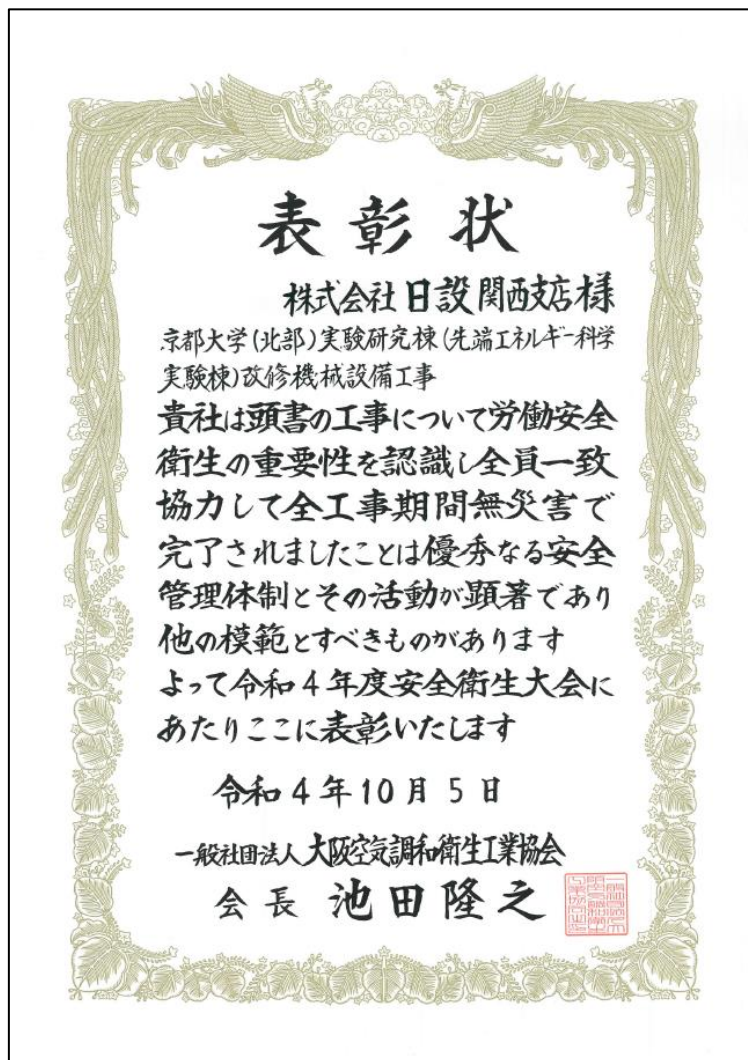 表彰状
株式会社日設関西支店様
京都大学(北部)実験研究棟(先端エネルギー科学
実験棟)改修機械設備工事
貴社は頭書の工事について労働安全
衛生の重要性を認識し全員一致
協力して全工事期間無災害で
完了されましたことは優秀なる安全
管理体制とその活動が顕著であり
他の模範とすべきものがあります
よって令和4年度安全衛生大会に
あたりここに表彰いたします
令和4年10月5日
一般社団法人大阪空気調和衛生工業協会
会長 池田隆之